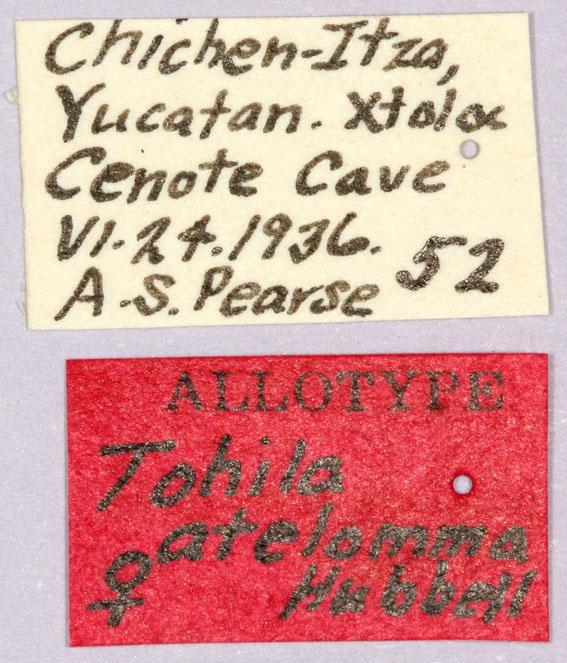 Chichen-Itza,
Yucatan. Xtoloc
Cenote Cave
VI.24.1936.
A.S. Pearse 52
ALLOTYPE
Tohila
atelomma
♀ Hubbell